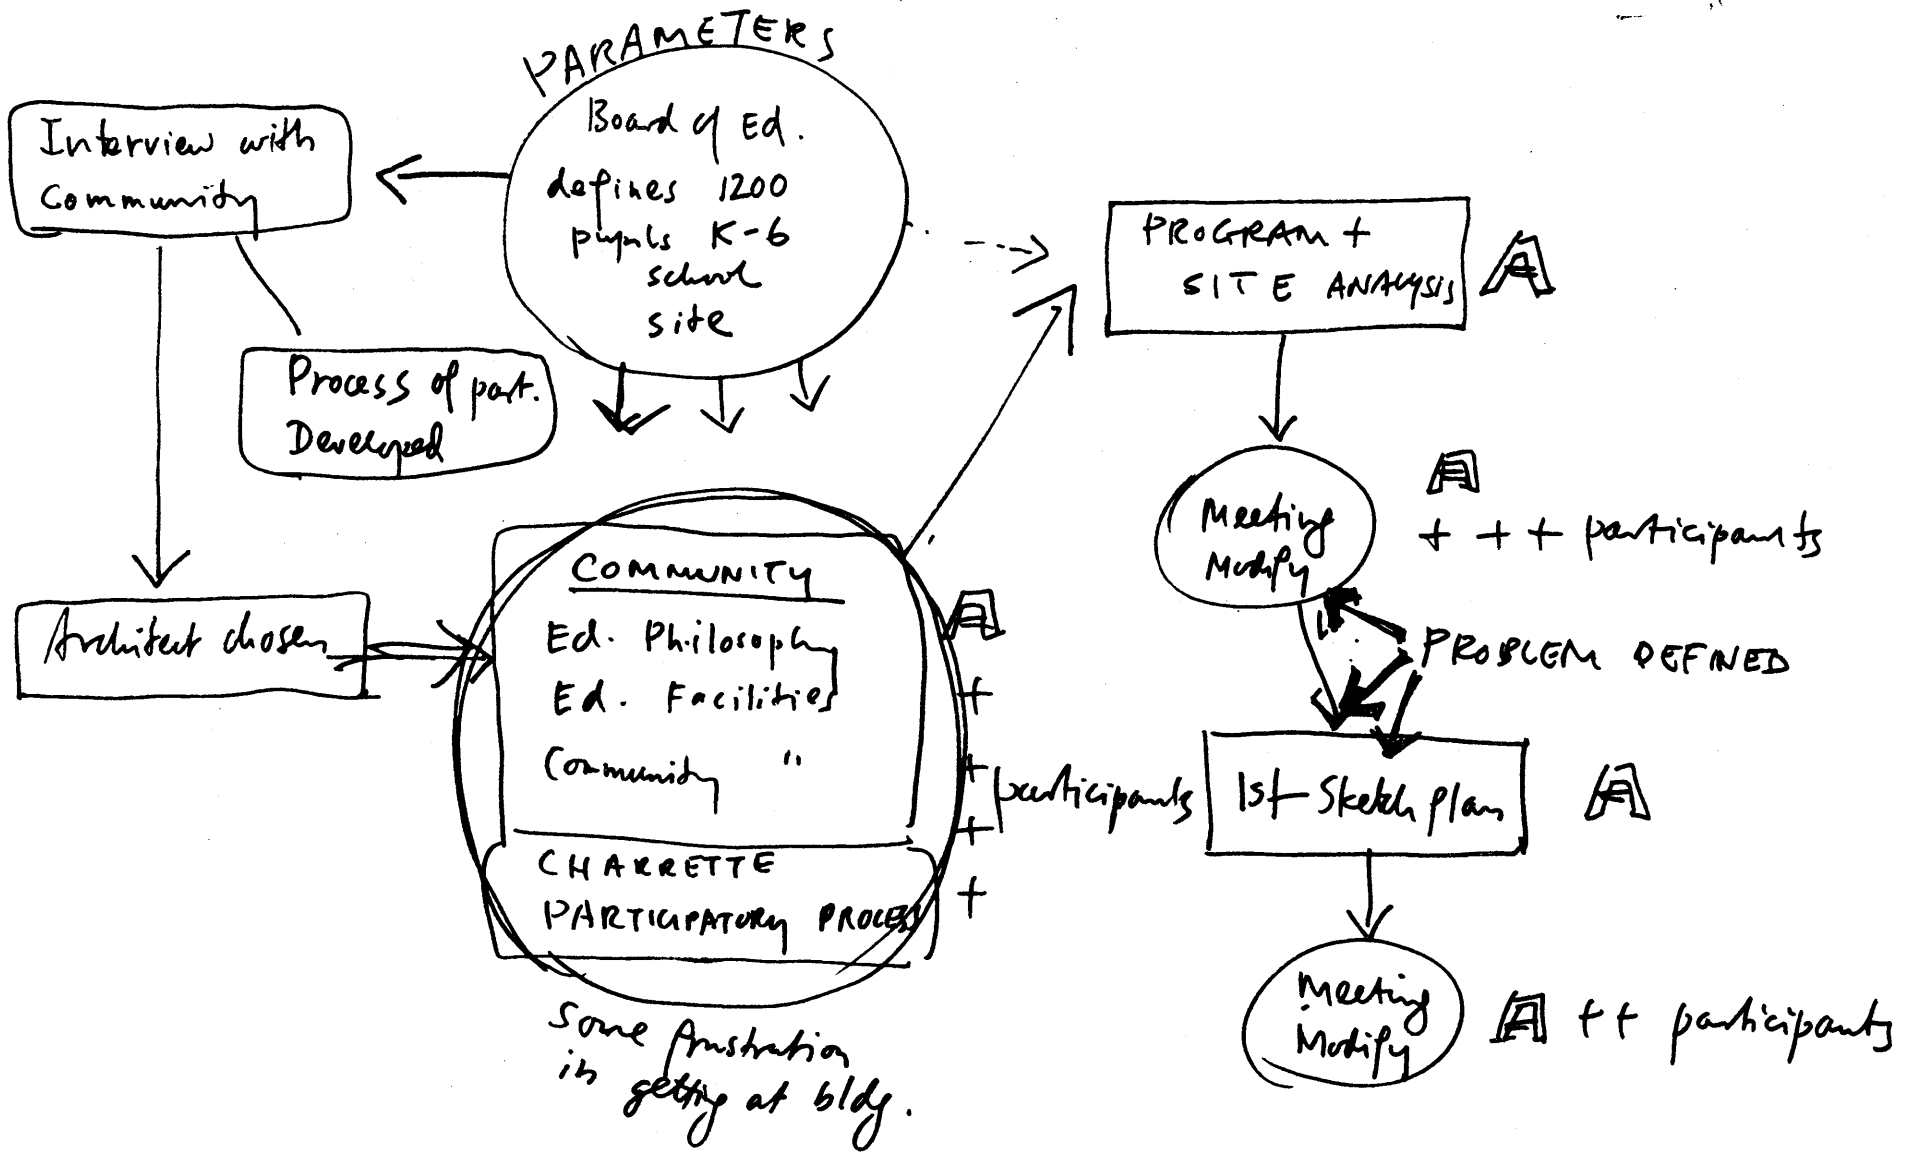 PARAMETERS
Board of Ed.
defines 1200
pupils K-6
school
site
Interview with
Community
Process of part.
Developed
Architect chosen
COMMUNITY
Ed. Philosophy
Ed. Facilities
Community "
CHARRETTE
PARTICIPATORY PROCESS
A
+
+
participants
+
+
Some frustration
in getting at bldg.
PROGRAM +
SITE ANALYSIS
A
Meeting
Modify
A
+ + + participants
PROBLEM DEFINED
1st Sketch plan
A
Meeting
Modify
A ++ participants